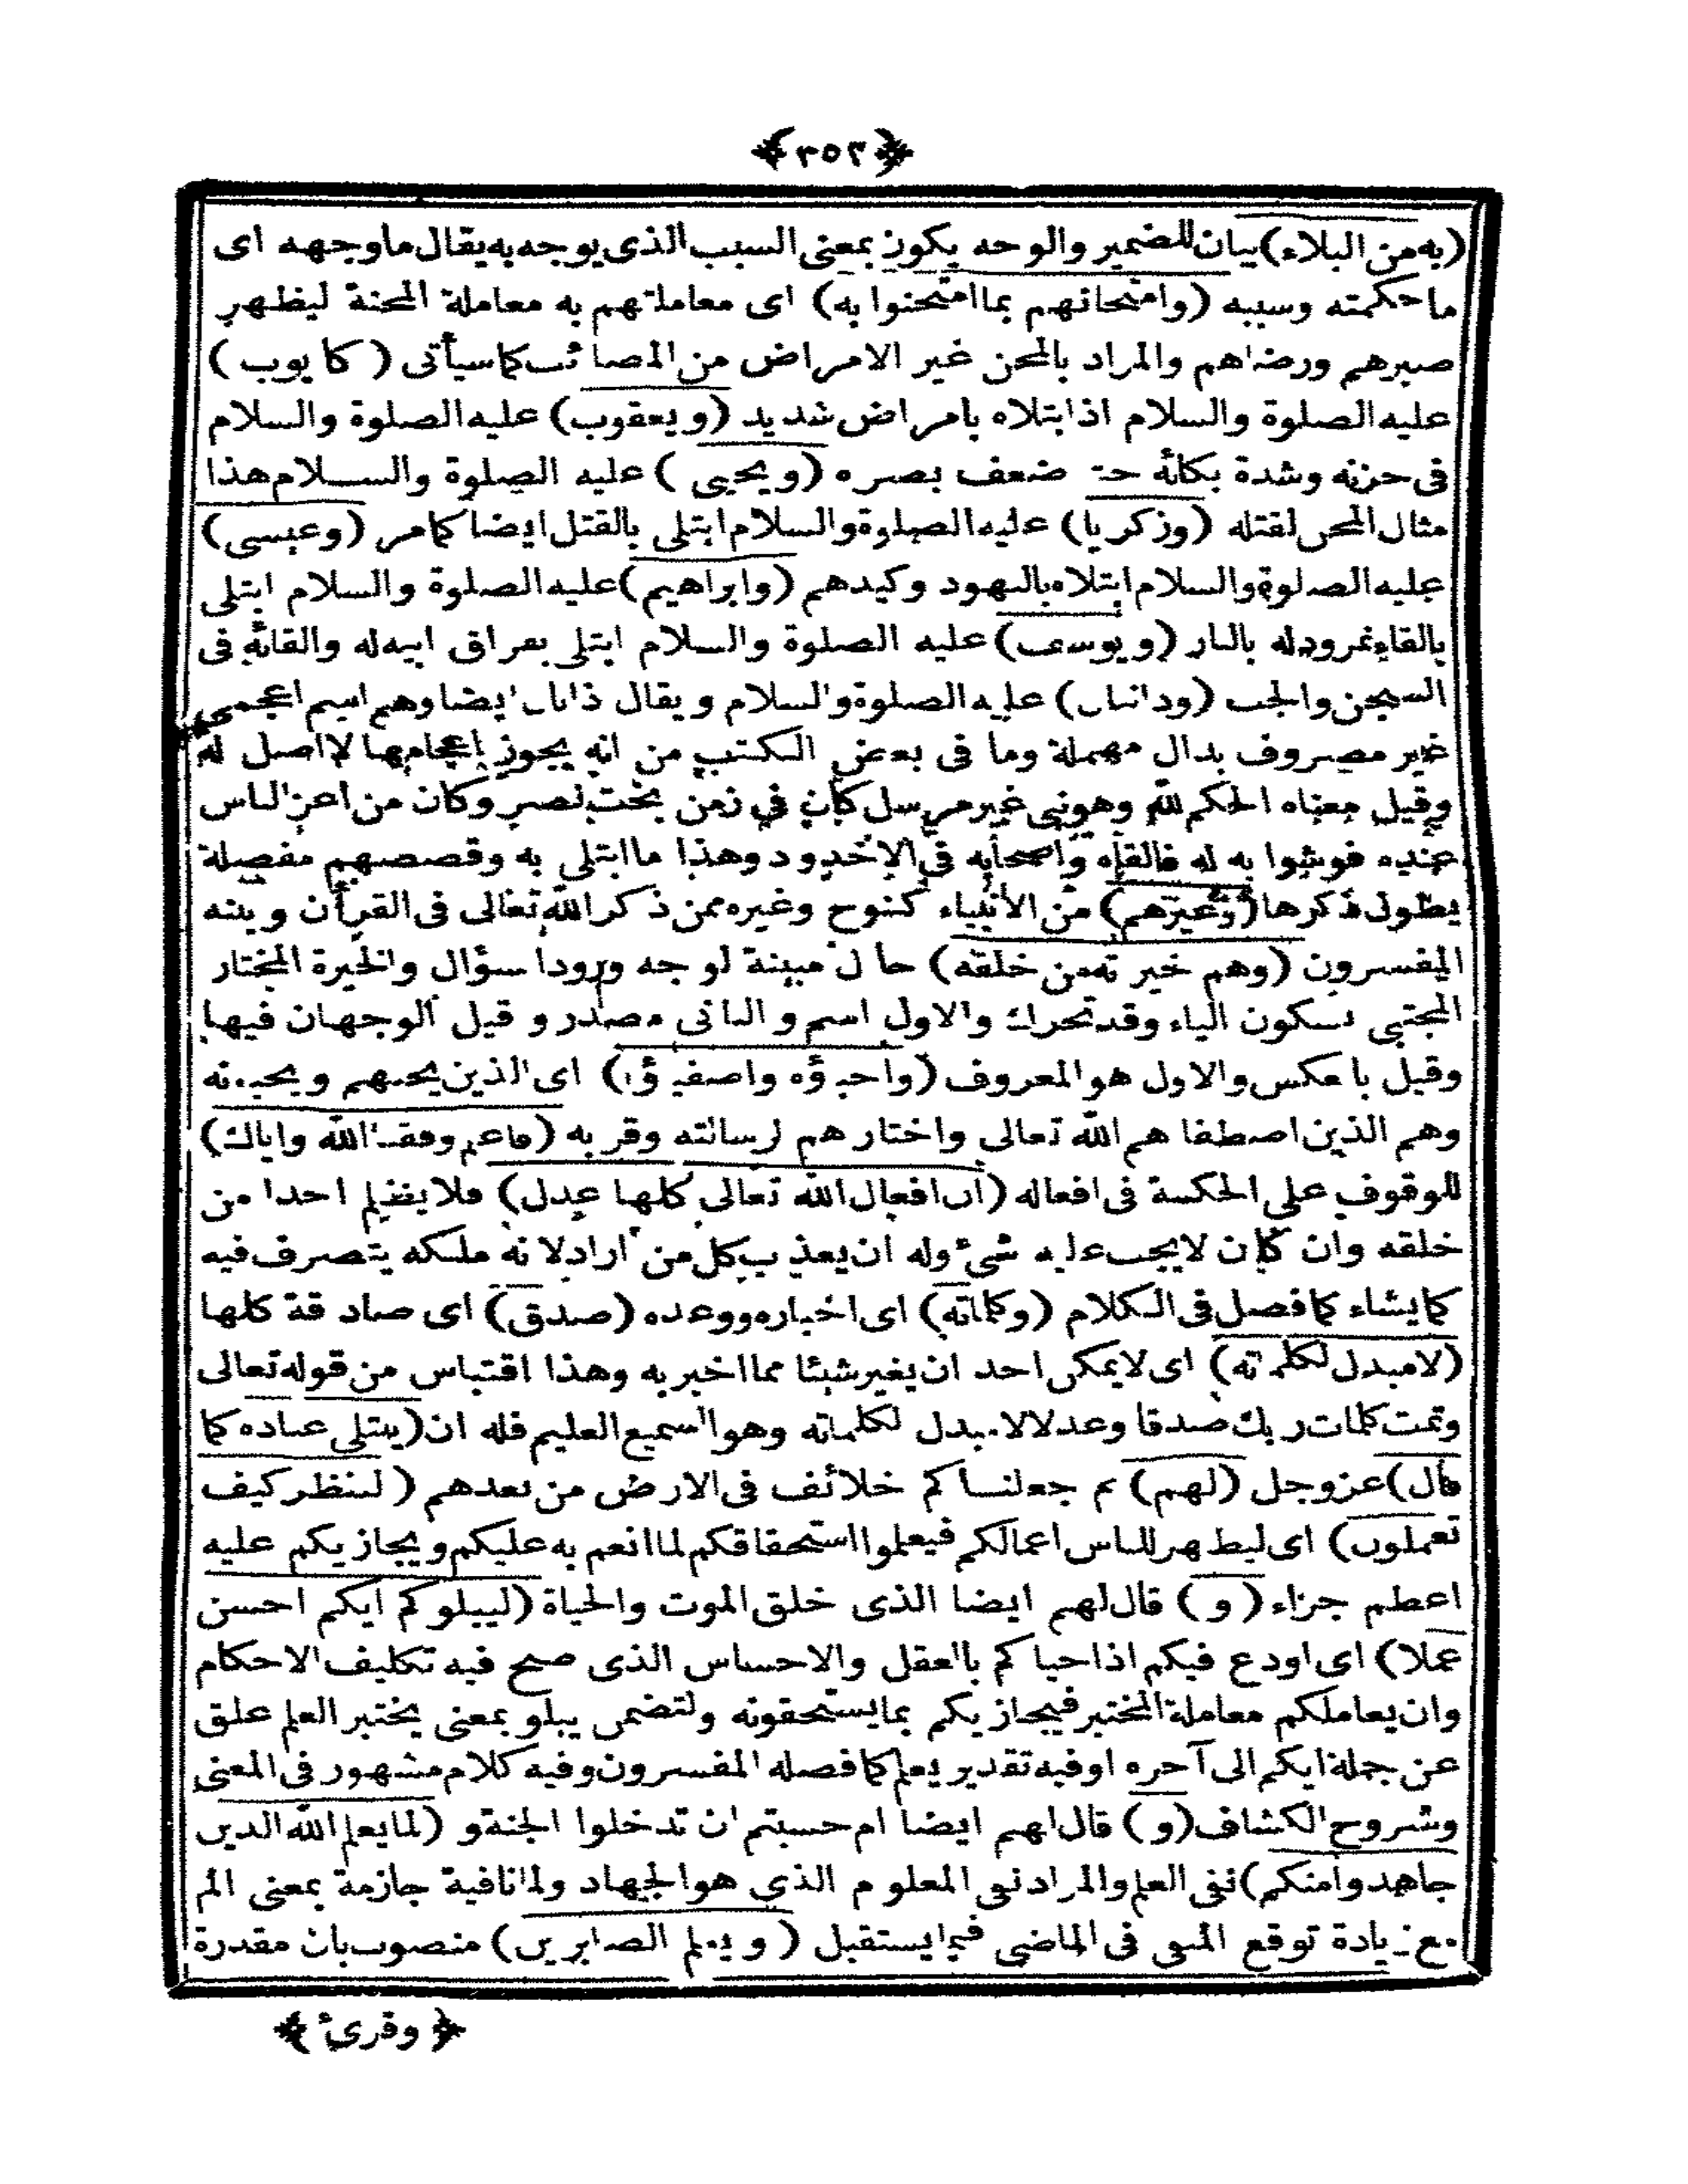 ﴿٣٥٢﴾
(به من البلاء) بيان للضمير والوجه يكون بمعنى السبب الذى يوجه به يقال ماوجهه اى
ما حكمته وسببه (وامتحانهم بما امتحنوا به) اى معاملتهم به معاملة المحنة ليظهر
صبرهم ورضاهم والمراد بالمحن غير الامراض من المصائب كما سيأتى (كايوب)
عليه الصلوة والسلام اذ ابتلاه بامراض شديد (ويعقوب) عليه الصلوة والسلام
فى حزنه وشدة بكائه حتى ضعف بصره (ويحيى) عليه الصلوة والسلام هذا
مثال المحن لقتله (وزكريا) عليه الصلوة والسلام ابتلى بالقتل ايضا كما مر (وعيسى)
عليه الصلوة والسلام ابتلاه باليهود وكيدهم (وابراهيم) عليه الصلوة والسلام ابتلى
بالقاء نمرود له بالنار (ويوسف) عليه الصلوة والسلام ابتلى بفراق ابيه له والقائه فى
السجن والجب (ودانيال) عليه الصلوة والسلام ويقال دانال ايضا وهم اسم اعجمى
غير مصروف بدال مهملة وما فى بعض الكتب من انه يجوز اعجامها لا اصل له
وقيل معناه الحكم لله وهو نبى غير مرسل كان فى زمن بخت نصر وكان من اعز الناس
عنده فوشوا به له فالقاه واصحابه فى الاخدود وهذا ما ابتلى به وقصصهم مفصلة
يطول ذكرها (وغيرهم) من الأنبياء كنوح وغيره ممن ذكر الله تعالى فى القرأن وبينه
المفسرون (وهم خيرته من خلقه) حال مبينة لوجه ورود السؤال والخيرة المختار
المجتبى بسكون الياء وقد تحرك والاول اسم والثانى مصدر وقيل الوجهان فيها
وقيل بالعكس والاول هو المعروف (واحباؤه واصفياؤه) اى الذين يحبهم ويحبونه
وهم الذين اصطفاهم الله تعالى واختارهم لرسالته وقربه (فاعلم وفقنا الله واياك)
للوقوف على الحكمة فى افعاله (ان افعال الله تعالى كلها عدل) فلا يظلم احدا من
خلقه وان كان لا يجب عليه شىء وله ان يعذب كل من اراد لانه ملكه يتصرف فيه
كما يشاء كما فصل فى الكلام (وكلماته) اى اخباره ووعده (صدق) اى صادقة كلها
(لا مبدل لكلماته) اى لا يمكن احد ان يغير شيئا مما اخبر به وهذا اقتباس من قوله تعالى
وتمت كلمات ربك صدقا وعدلا لا مبدل لكلماته وهو السميع العليم فله ان (يبتلى عباده كما
قال) عز وجل (لهم) ثم جعلناكم خلائف فى الارض من بعدهم (لننظر كيف
تعملون) اى ليظهر للناس اعمالكم فيعلموا استحقاقكم لما انعم به عليكم ويجازيكم عليه
اعظم جزاء (و) قال لهم ايضا الذى خلق الموت والحياة (ليبلوكم ايكم احسن
عملا) اى اودع فيكم اذ احياكم بالعقل والاحساس الذى صح فيه تكليف الاحكام
وان يعاملكم معاملة المختبر فيجازيكم بما يستحقونه ولتضمن يبلو بمعنى يختبر العلم علق
عن جملة ايكم الى آخره او فيه تقدير يعلم كما فصله المفسرون وفيه كلام مشهور فى المغنى
وشروح الكشاف (و) قال لهم ايضا ام حسبتم ان تدخلوا الجنة و (لما يعلم الله الذين
جاهدوا منكم) نفى العلم والمراد نفى المعلوم الذى هو الجهاد ولما نافية جازمة بمعنى الم
مع زيادة توقع المنفى فى الماضى فيما يستقبل (ويعلم الصابرين) منصوب بان مقدرة
﴿وقرئ﴾